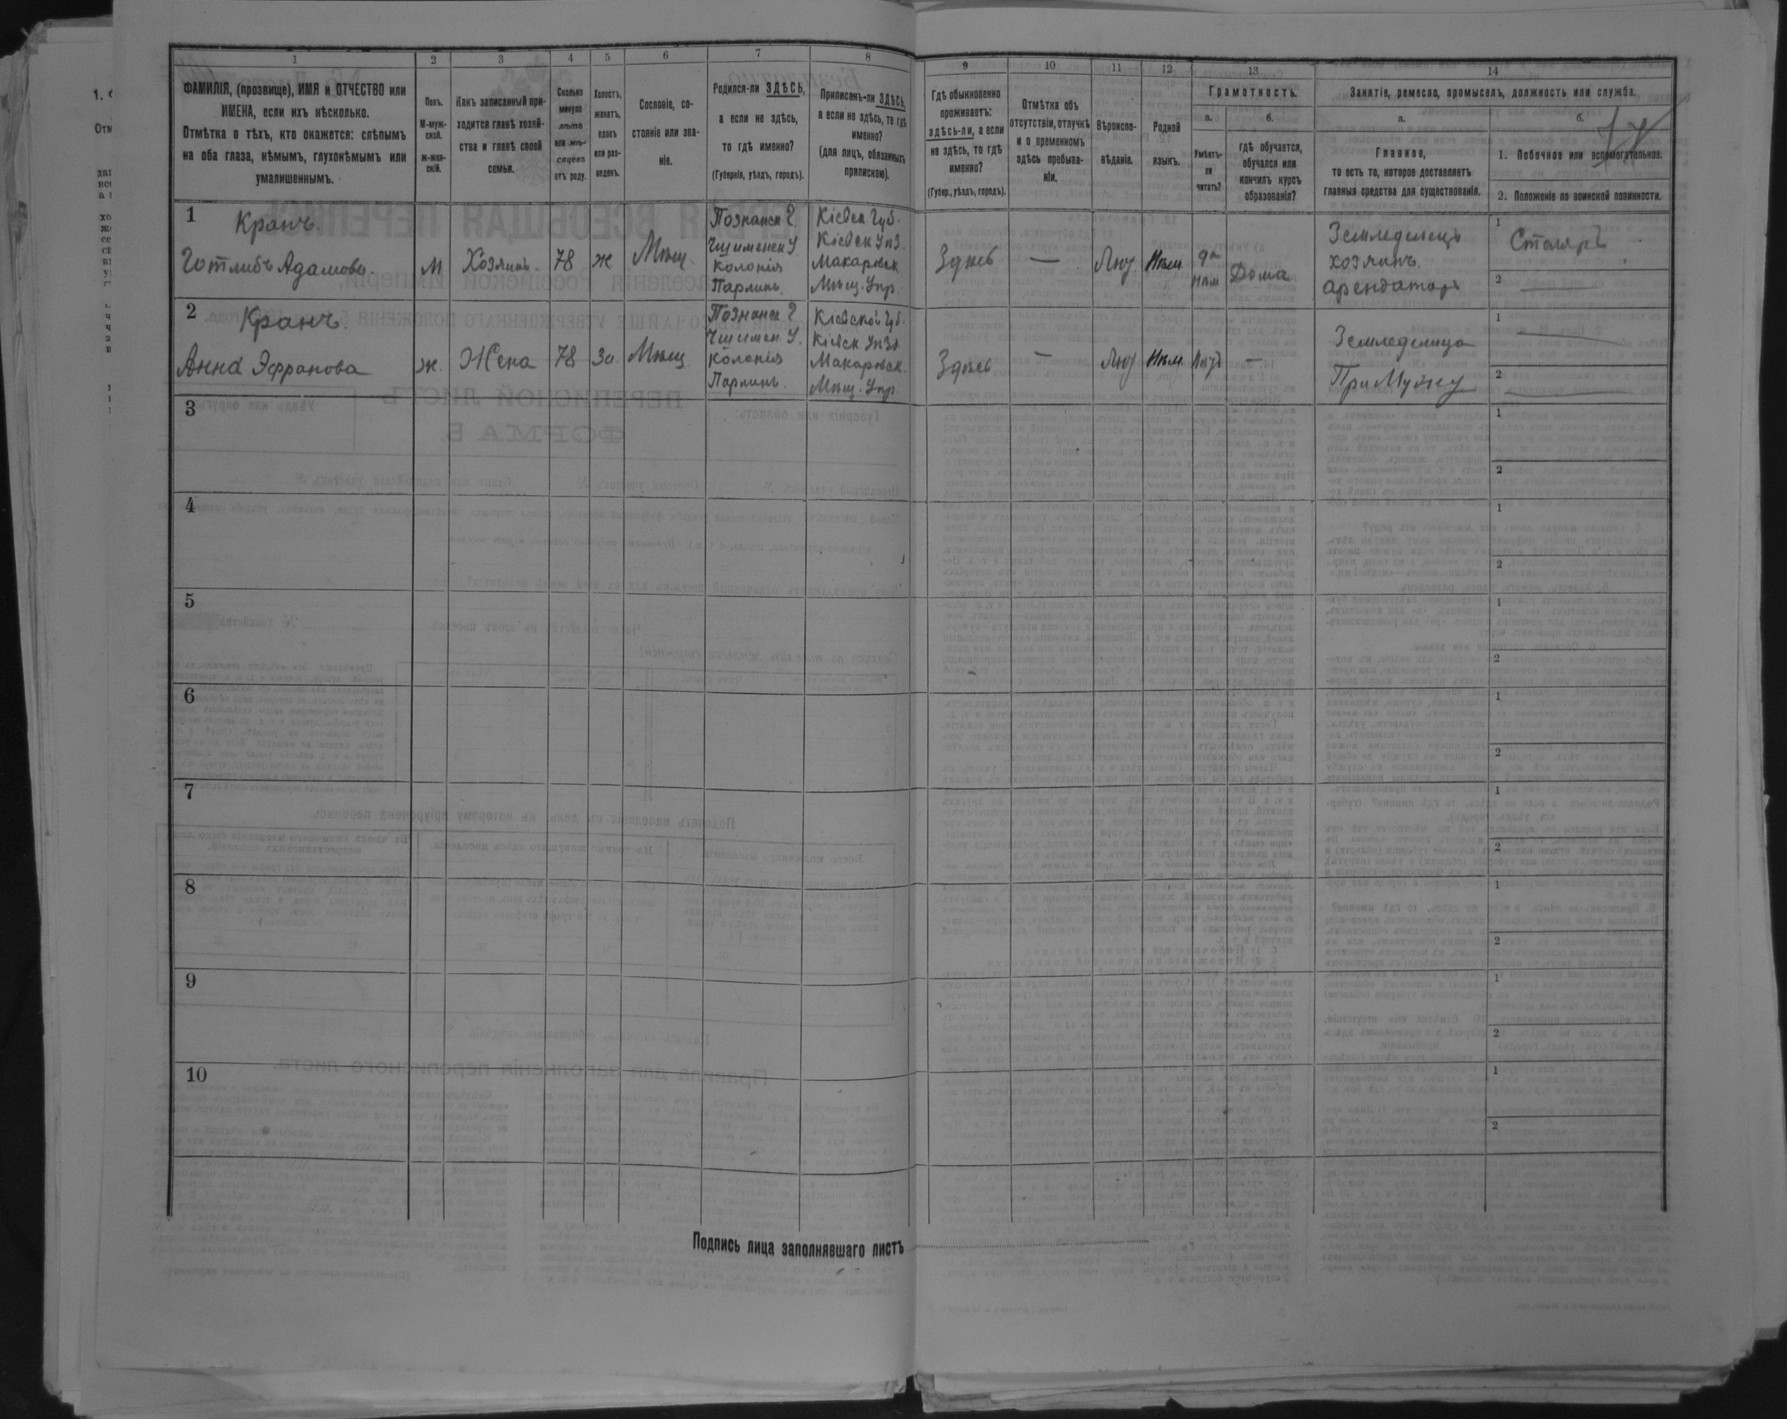 1
2
3
4
5
6
7
8
ФАМИЛІЯ, (прозвище), ИМЯ и ОТЧЕСТВО или
ИМЕНА, если ихъ нѣсколько.
Отмѣтка о тѣхъ, кто окажется: слѣпымъ
на оба глаза, нѣмымъ, глухонѣмымъ или
умалишеннымъ.
Полъ.
М-муж-
ской.
ж-жен-
скій.
Какъ записанный при-
ходится главѣ хозяй-
ства и главѣ своей
семьи.
Сколько
минуло
лѣтъ
или мѣ-
сяцевъ
отъ роду.
Холостъ,
женатъ,
вдовъ
или раз-
веденъ.
Сословіе, со-
стояніе или зва-
ніе.
Родился-ли ЗДѢСЬ,
а если не здѣсь,
то гдѣ именно?
(Губернія, уѣздъ, городъ).
Приписанъ-ли ЗДѢСЬ,
а если не здѣсь, то гдѣ
именно?
(для лицъ, обязанныхъ
припискою).
1
Кранъ.
Готлибъ Адамовъ.
М
Хозяинъ.
78
Ж
Мѣщ
Познанск Г
колонія
Парлинъ.
Кіевск Губ.
Кіевск Уѣз.
Макаровск.
Мѣщ. Упр.
2
Кранъ.
Анна
ж.
Жена
78
За.
Мѣщ
Познанск Г
колонія
Парлинъ.
Кіевской Губ.
Кіевск Уѣз
Макаровск.
Мѣщ. Упр
3
4
5
6
7
8
9
10
Подпись лица заполнявшаго листъ
9
10
11
12
13
14
Гдѣ обыкновенно
проживаетъ:
здѣсь-ли, а если
не здѣсь, то гдѣ
именно?
(Губер., уѣздъ, городъ).
Отмѣтка объ
отсутствіи, отлучкѣ
и о временномъ
здѣсь пребыва-
ніи.
Вѣроиспо-
вѣданіе.
Родной
языкъ.
Грамотность.
а.
Умѣетъ-
ли
читать?
б.
гдѣ обучается,
обучался или
кончилъ курсъ
образованія?
Занятіе, ремесло, промыселъ, должность или служба.
а.
Главное,
то есть то, которое доставляетъ
главныя средства для существованія.
б.
1. Побочное или вспомогательное.
2. Положеніе по воинской повинности.
Здѣсь
—
Лют
Нѣм
да
нѣм
Дома
Земледелецъ
хозяинъ.
арендаторъ
1
Столяръ
2
Здѣсь
—
Лют
Нѣм.
—
Земледелица
При Мужу
1
2
1
2
1
2
1
2
1
2
1
2
1
2
1
2
1
2